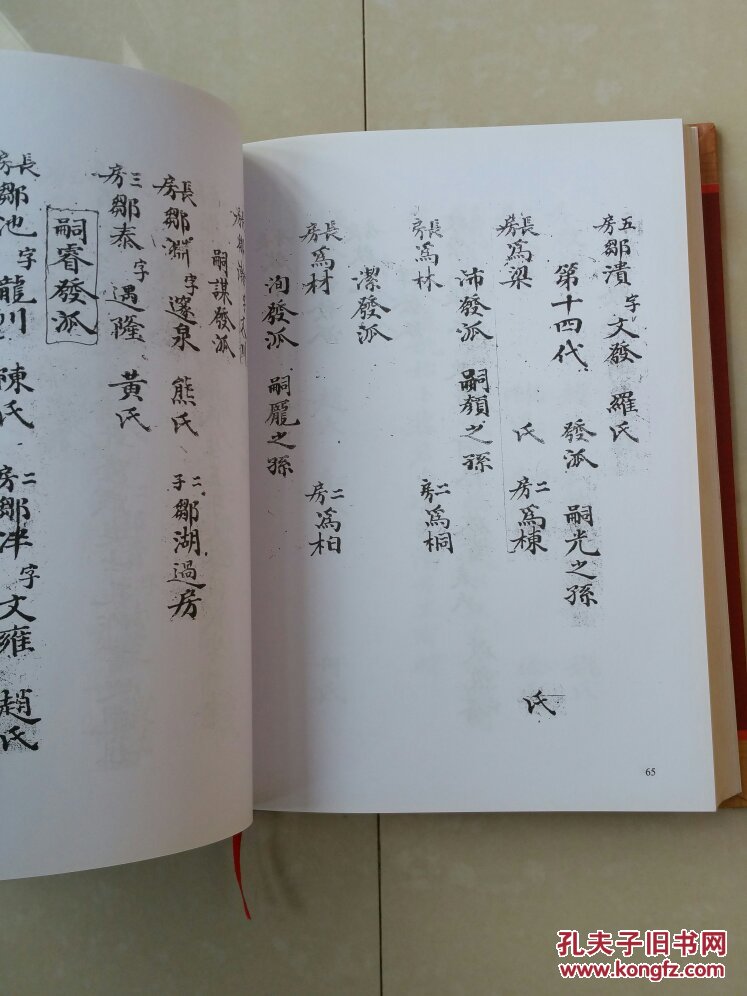 五房鄒瀆字文發 羅氏
第十四代 發派 嗣光之孫
長房為梁 氏 二房為棟 氏
沛發派 嗣頫之孫
長房為林 二房為桐
潔發派
長房為材 二房為柏
洵發派 嗣龐之孫
65
嗣謀發派
長房鄒淵字邃泉 熊氏 二子鄒湖過房
三房鄒泰字遇隆 黃氏
嗣睿發派
長房鄒池字龍川 陳氏 二房鄒津字文雍 趙氏
孔夫子旧书网
www.kongfz.com